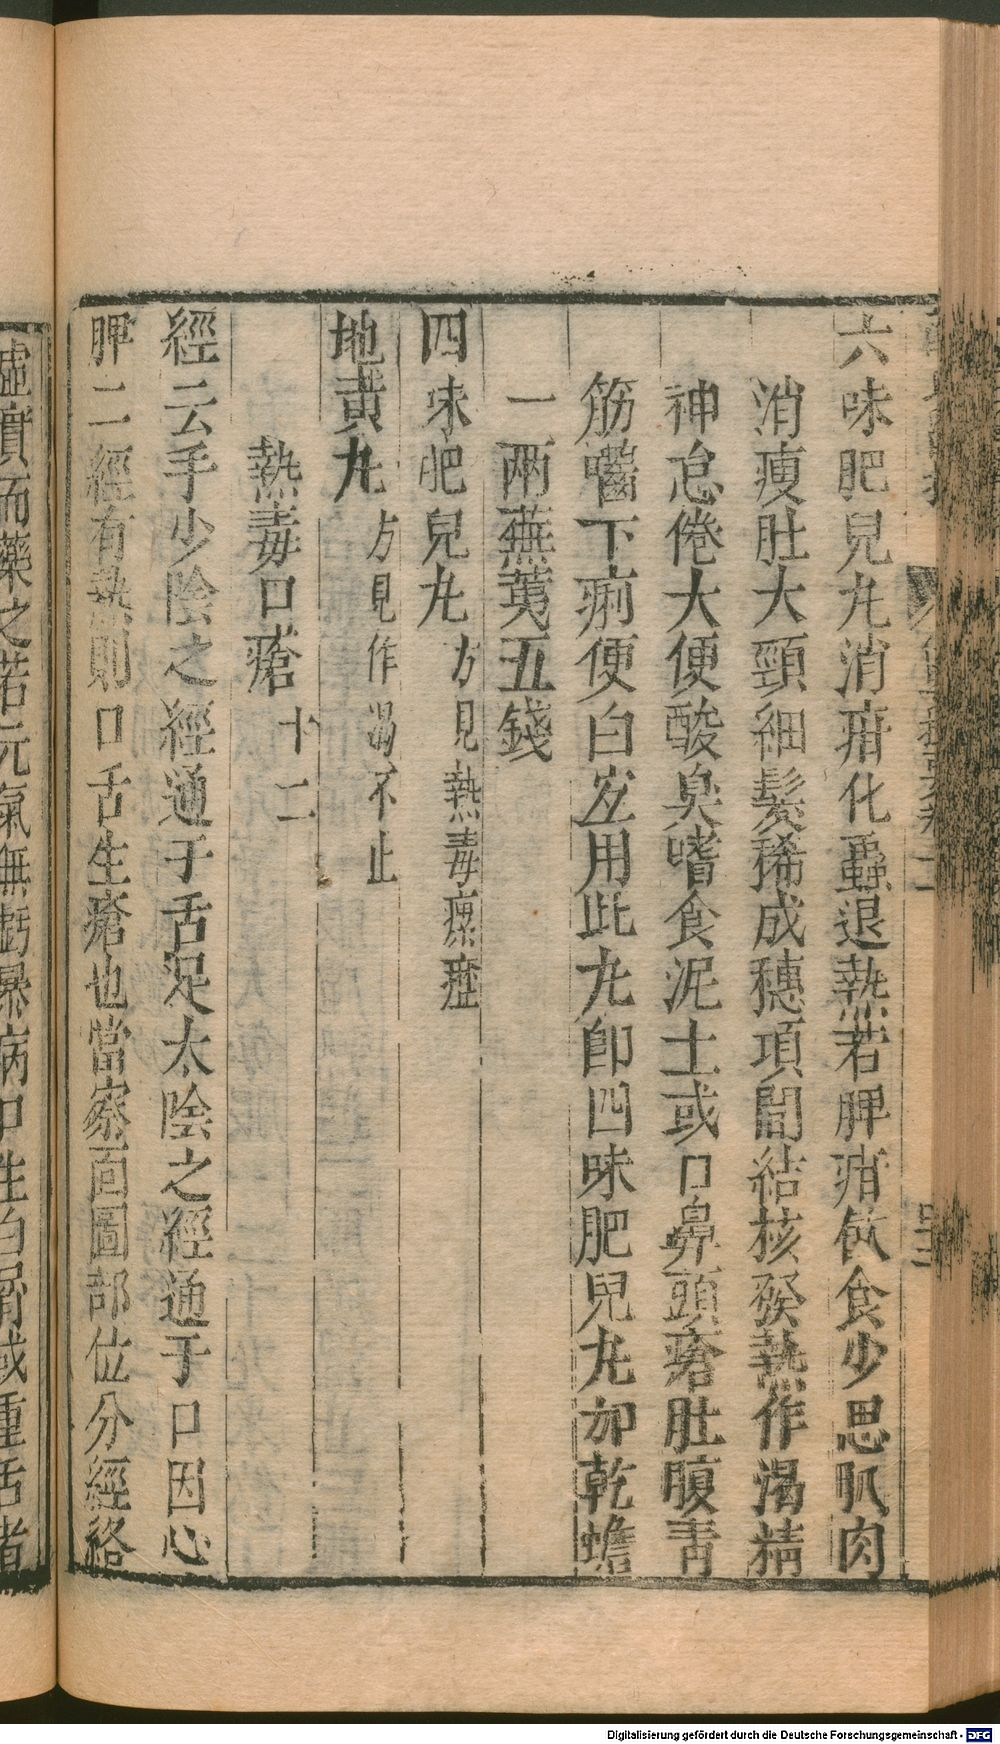 六味肥兒丸消疳化蟲退熱若脾疳飲食少思肌肉
消瘦肚大頸細髮稀成穗項間結核發熱作渴精
神怠倦大便酸臭嗜食泥土或口鼻頭瘡肚腹青
筋嚙下痢便白並用此丸卽四味肥兒丸加乾蟾
一兩蕪荑五錢
四味肥兒丸方見熱毒瘰癧
地黃丸方見作渴不止
熱毒口瘡十二
經云手少陰之經通于舌足太陰之經通于口因心
脾二經有熱則口舌生瘡也當察面圖部位分經絡
虛實而藥之若元氣無虧暴病口生白屑或重舌者
Digitalisierung gefördert durch die Deutsche Forschungsgemeinschaft - DFG